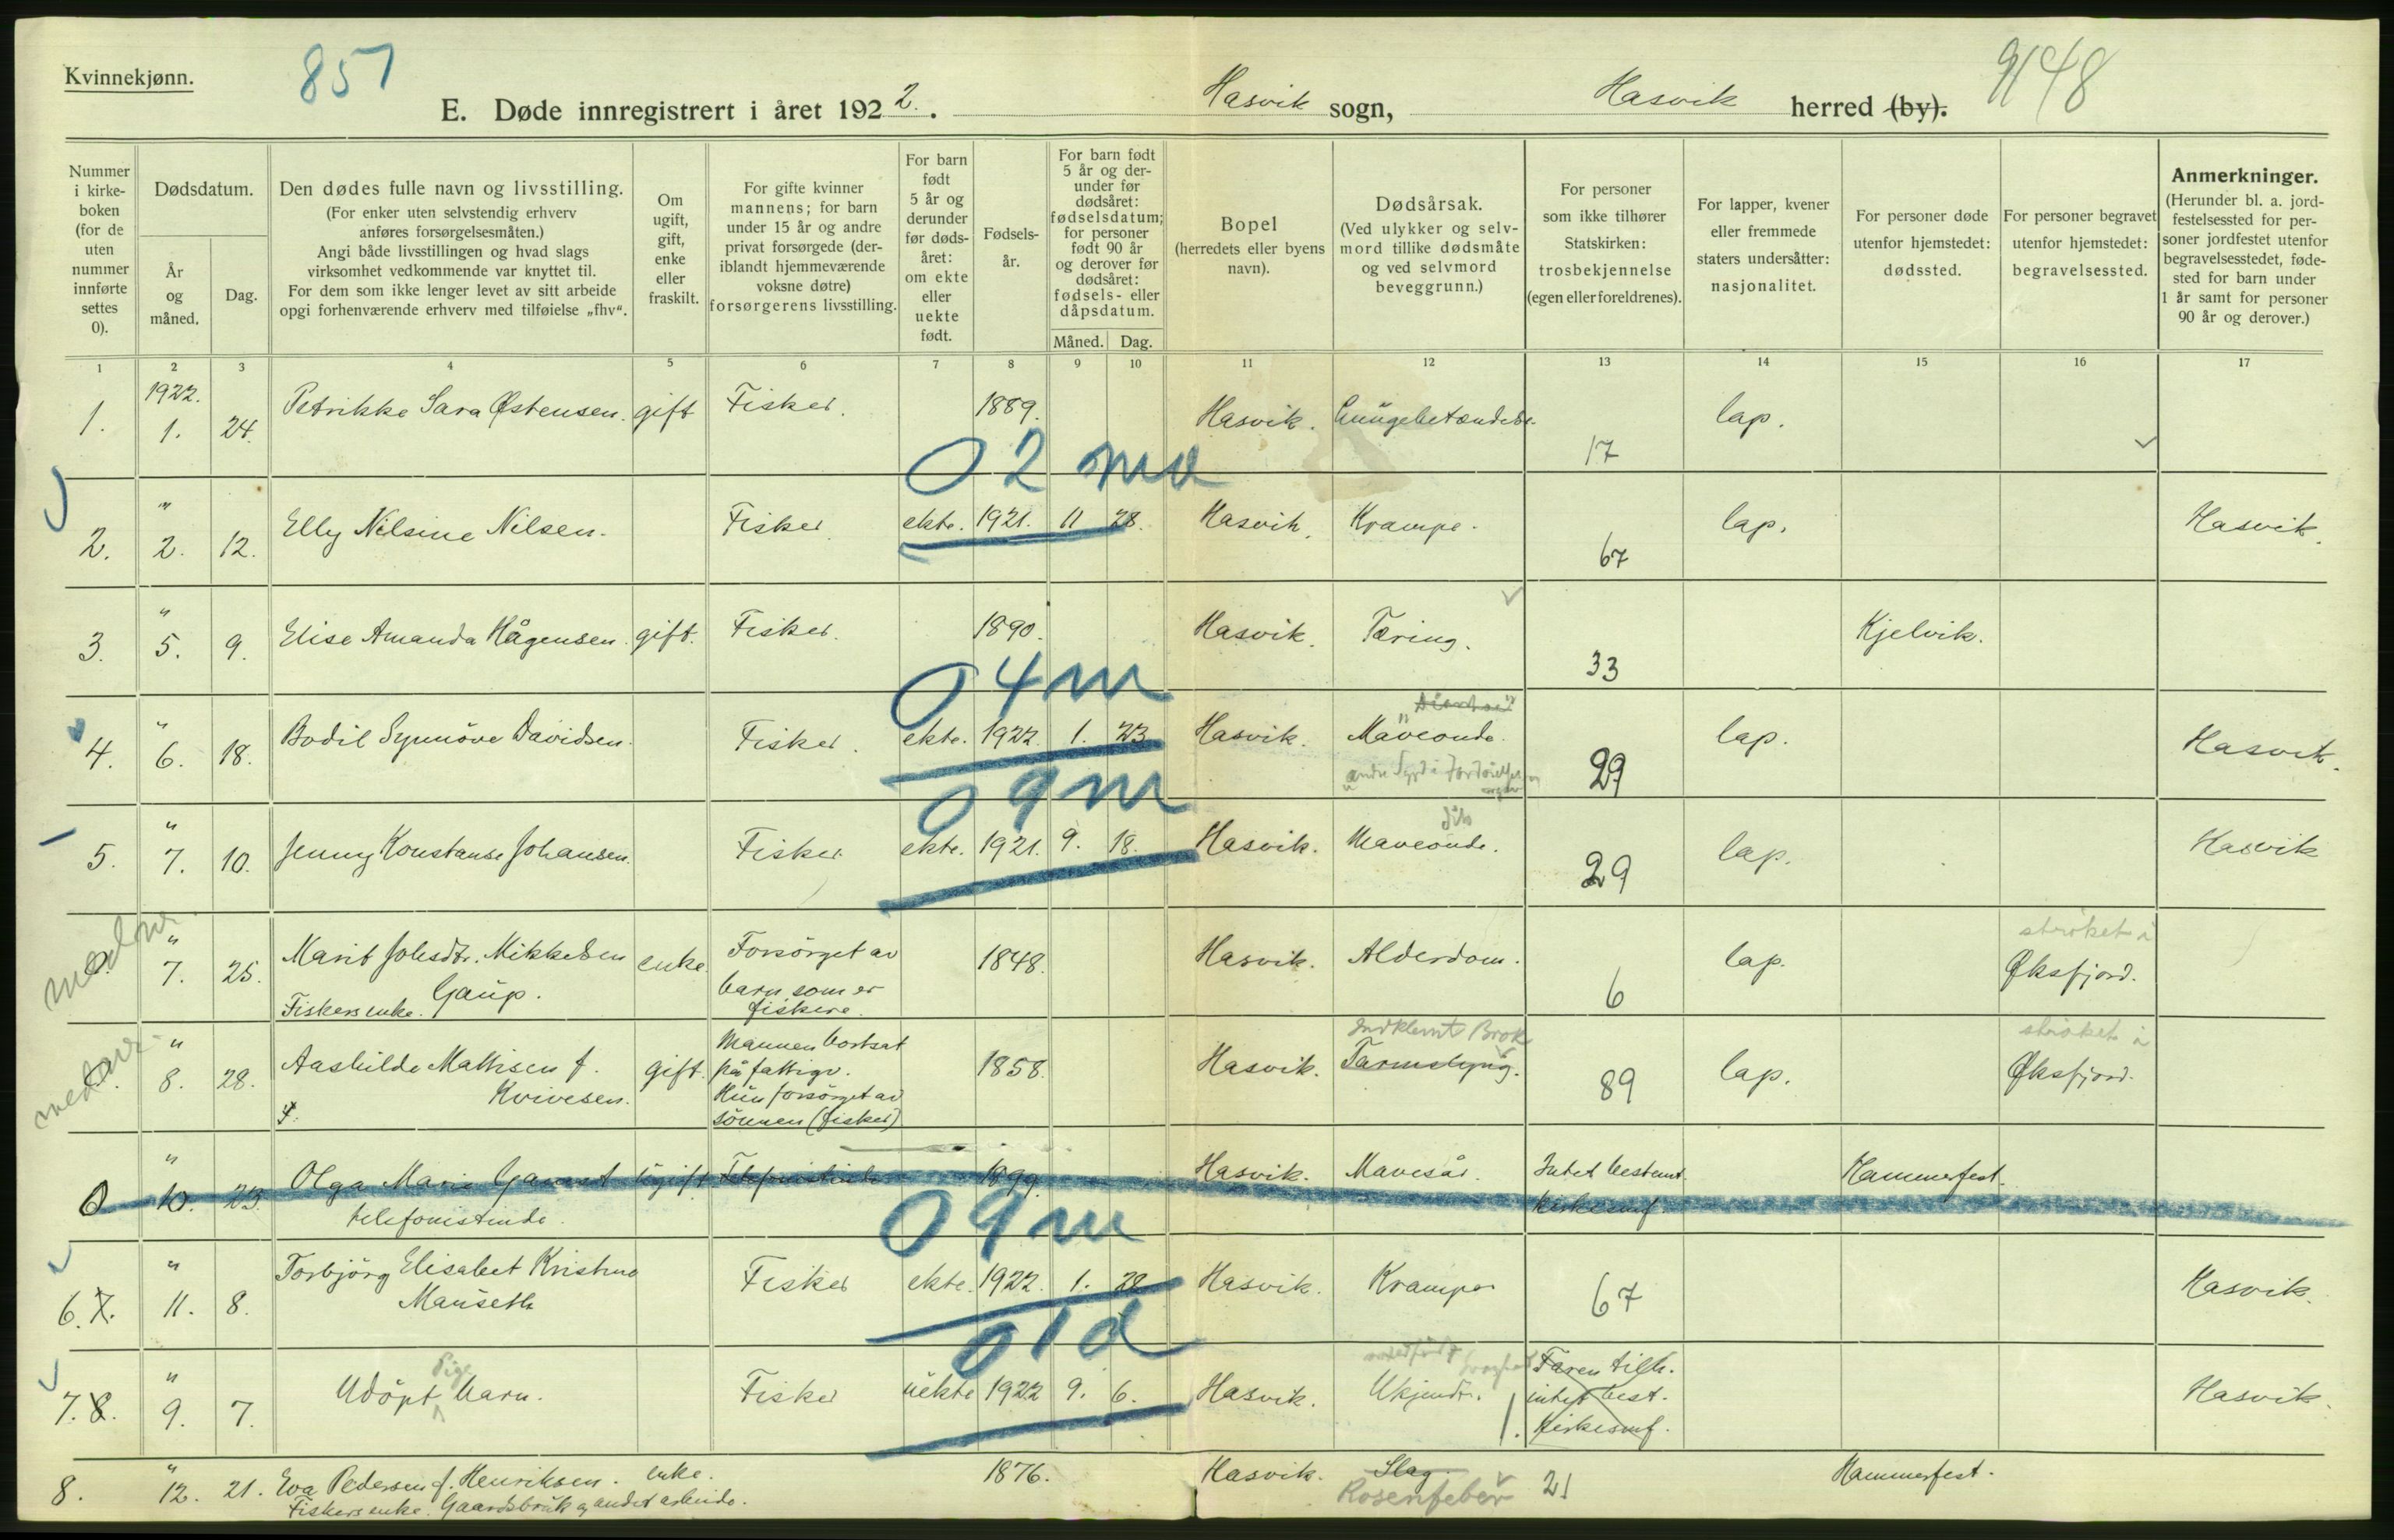 Kvinnekjønn.
857
E. Døde innregistrert i året 1922. Hasvik sogn, Hasvik herred (by).
9148
Nummer i kirkeboken (for de uten nummer innførte settes 0).
Dødsdatum.
År og måned.
Dag.
Den dødes fulle navn og livsstilling.
(For enker uten selvstendig erhverv anføres forsørgelsesmåten.)
Angi både livsstillingen og hvad slags virksomhet vedkommende var knyttet til.
For dem som ikke lenger levet av sitt arbeide opgi forhenværende erhverv med tilføielse „fhv“.
Om ugift, gift, enke eller fraskilt.
For gifte kvinner mannens; for barn under 15 år og andre privat forsørgede (deriblandt hjemmeværende voksne døtre) forsørgerens livsstilling.
For barn født 5 år og derunder før dødsåret: om ekte eller uekte født.
Fødselsår.
For barn født 5 år og derunder før dødsåret: fødselsdatum; for personer født 90 år og derover før dødsåret: fødsels- eller dåpsdatum.
Måned. Dag.
Bopel (herredets eller byens navn).
Dødsårsak.
(Ved ulykker og selvmord tillike dødsmåte og ved selvmord beveggrunn.)
For personer som ikke tilhører Statskirken: trosbekjennelse (egen eller foreldrenes).
For lapper, kvener eller fremmede staters undersåtter: nasjonalitet.
For personer døde utenfor hjemstedet: dødssted.
For personer begravet utenfor hjemstedet: begravelsessted.
Anmerkninger.
(Herunder bl. a. jordfestelsessted for personer jordfestet utenfor begravelsesstedet, fødested for barn under 1 år samt for personer 90 år og derover.)
1 2 3 4 5 6 7 8 9 10 11 12 13 14 15 16 17
1. 1922. 1. 24. Petrikke Sara Østensen. gift Fisker. 1889. Hasvik. Lungebetændelse. 17 lap.
02 md
2. " 2. 12. Elly Nilsine Nilsen. Fisker ekte. 1921. 11 28. Hasvik. Krampe. 67 lap. Hasvik.
3. " 5. 9. Elise Amanda Hågensen. gift. Fisker. 1890. Hasvik. Tæring. 33 Kjelvik.
04m
4. " 6. 18. Bodil Synnöve Davidsen. Fisker. ekte. 1922. 1. 23 Hasvik. Maveonde. 29 lap. Hasvik.
09m
5. " 7. 10. Jenny Konstanse Johansen. Fisker. ekte. 1921. 9. 18. Hasvik. Maveonde. 29 lap. Hasvik
0. " 7. 25. Marit Johsdtr. Mikkelsen Gaup. Fiskers enke. enke. Forsörget av barn, som er fiskere. 1848. Hasvik. Alderdom. 6 lap. ströket i Øksfjord.
0. " 8. 28. Aashilde Mathisen f. Kvivesen. gift. Mannen bortsat på fattigv. Hun forsörget av sönnen (fisker) 1858. Hasvik. Indklemt Brok Tarmslyng. 89 lap. ströket i Øksfjord.
0 " 10. 23. Olga Marie telefonistinde. ugift Telefonistinde 1899. Hasvik. Mavesår. Intet bestemt kirkesamf. Hammerfest.
09m
6. 7. " 11. 8. Torbjörg Elisabet Kristine Mauseth Fisker ekte. 1922. 1. 28 Hasvik. Krampe 67 Hasvik.
01d
7. 8. " 9. 7. Udöpt Pige barn. Fisker uekte 1922 9. 6. Hasvik. Ukjendt. 1. Faren tilh. intet best. kirkesamf. Hasvik.
8. " 12. 21. Eva Pedersen f. Henriksen. enke. 1876. Hasvik. Slag. Rosenfeber 21 Hammerfest.
Fiskers enke. Gaardsbruk og andet arbeide.